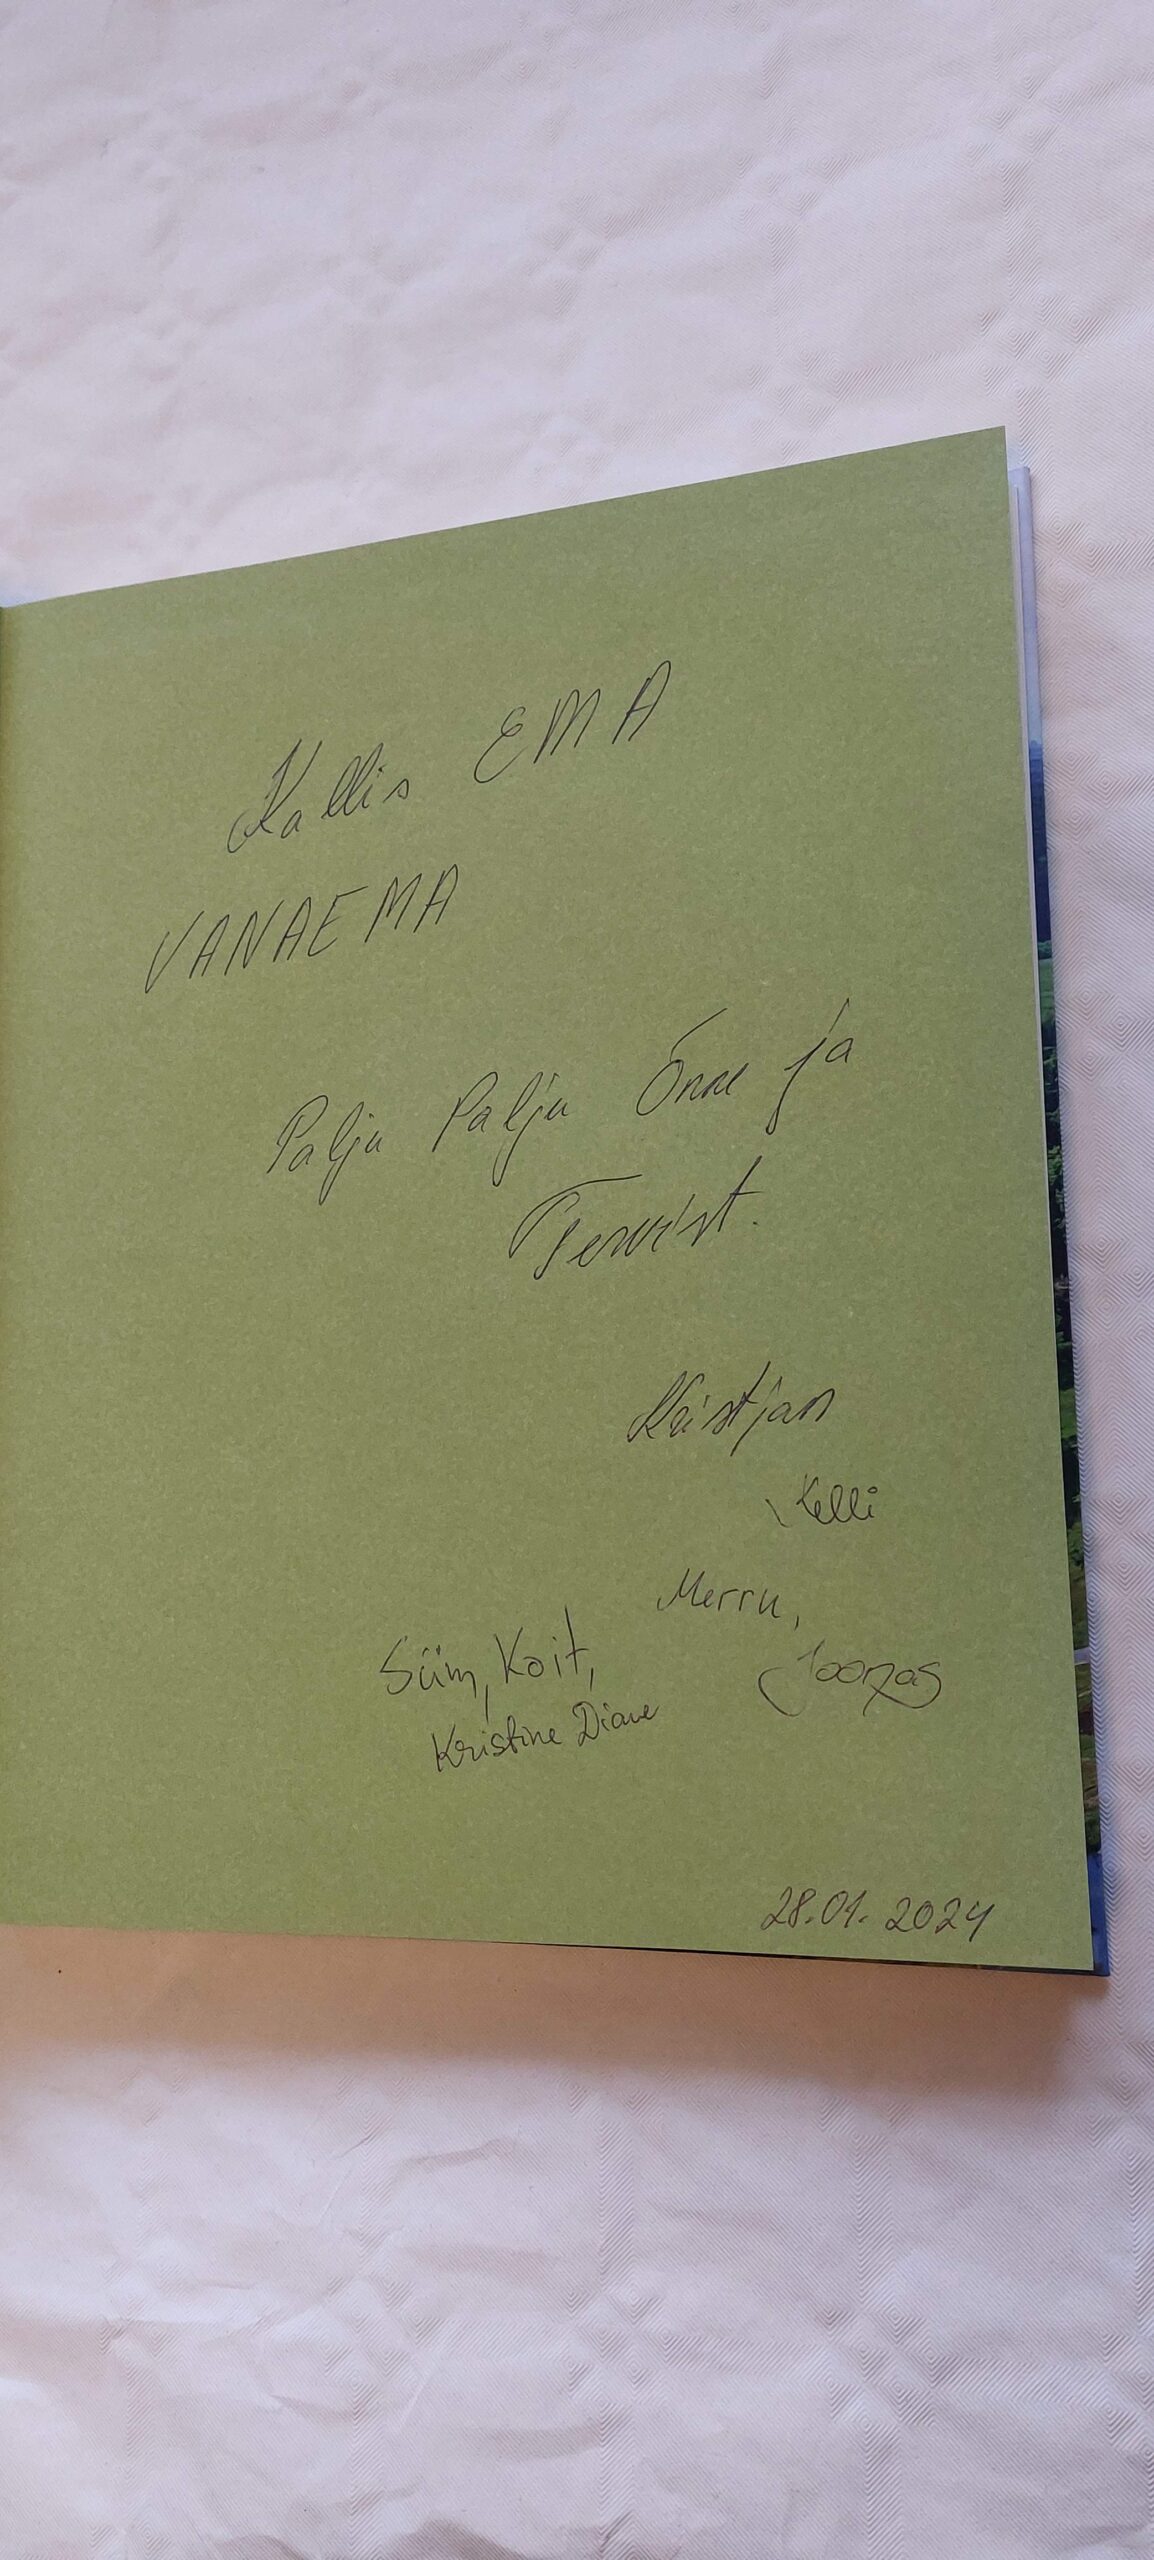 Kallis EMA
VANAEMA
Palju Palju Õnne ja
Tervist.
Kristjan
Kelli
Merru,
Joonas
Siim, Koit,
Kristine Diane
28.01.2024